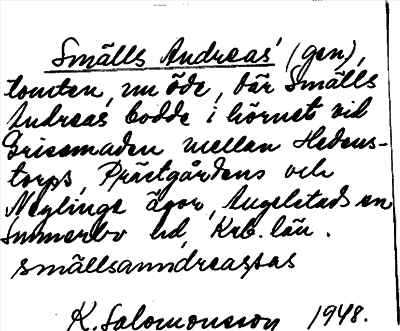 Smälls Andreas' (gen),
tomten, nu öde, där Smälls
Andreas bodde i hörnet vid
Grissmaden mellan Hedens-
torps, Prästgårdens och
Neglinge ägor, Augelstads sn
Sunnerbo hd, Krb. län.
smällsanndreastas
K. Salomonsson 1948.